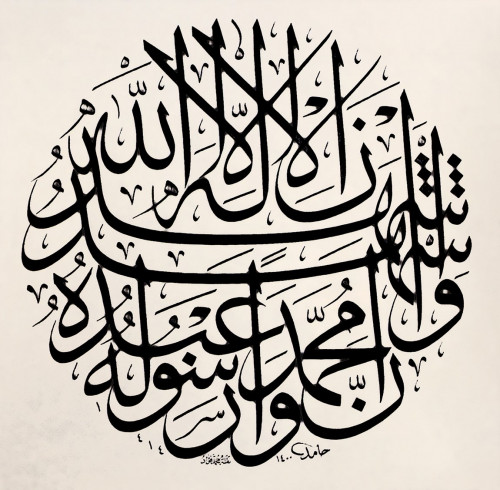 اشهد ان لا اله الا الله
واشهد انّ محمّدا عبده ورسوله
حامد ١٤٠٠